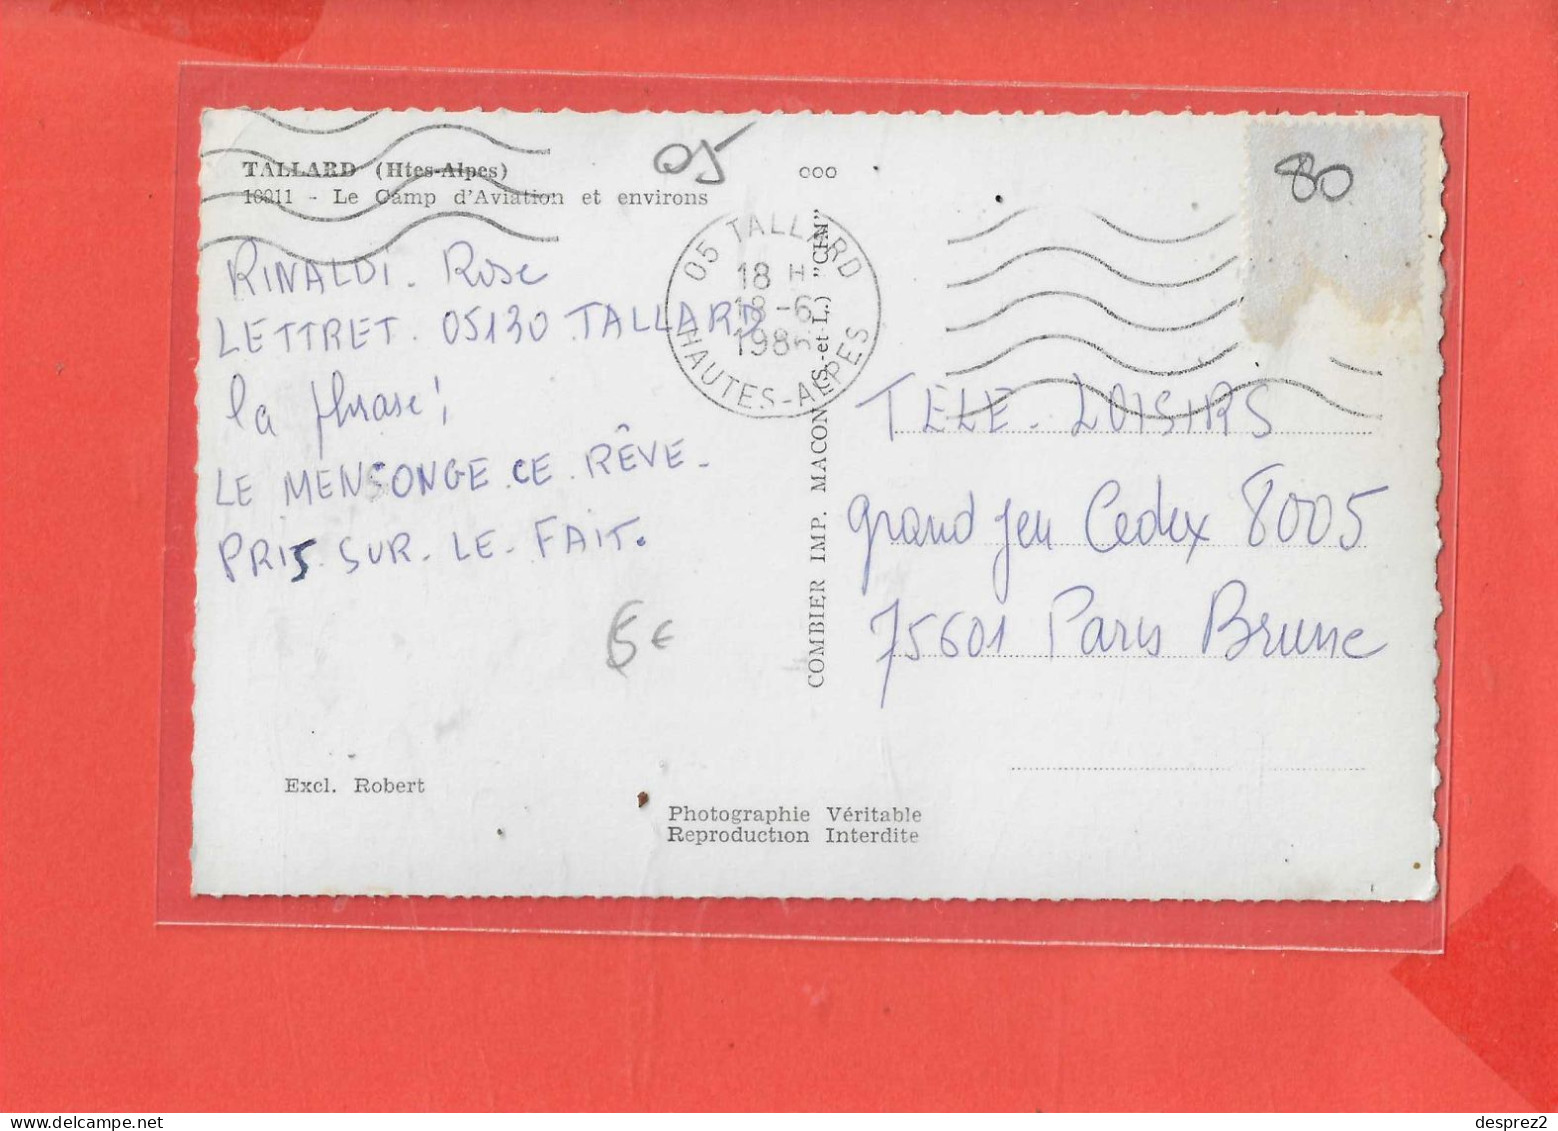 TALLARD (Htes-Alpes)
16011 - Le Camp d'Aviation et environs
05
ooo
80
05 TALLARD
18 H
18-6
198
HAUTES-ALPES
RINALDI. Rose
LETTRET. 05130 TALLARD
la phrase!
LE MENSONGE.CE.RÊVE.
PRIS.SUR.LE.FAIT.
6€
COMBIER IMP. MACON (S.-et-L.) "CIM"
TÈLE-LOISIRS
grand jeu Cedex 8005
75601 Paris Brune
Excl. Robert
Photographie Véritable
Reproduction Interdite
desprez2